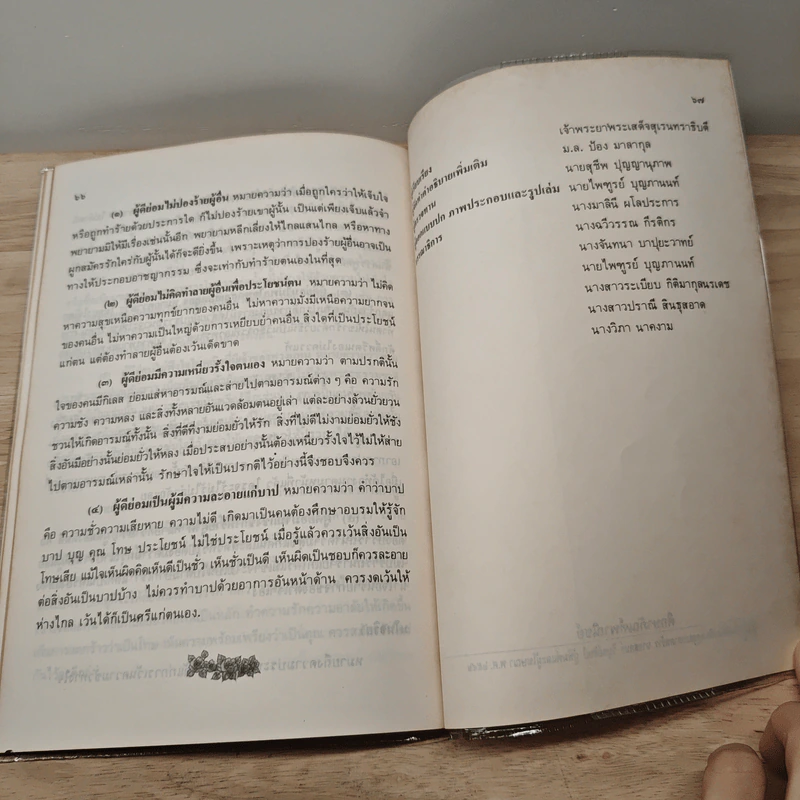 ๖๖
(๑) ผู้ดีย่อมไม่ปองร้ายผู้อื่น หมายความว่า เมื่อถูกใครว่าให้เจ็บใจ
หรือถูกทำร้ายด้วยประการใด ก็ไม่ปองร้ายเขาผู้นั้น เป็นแต่เพียงเจ็บแล้วจำ
พยายามมิให้มีเรื่องเช่นนั้นอีก พยายามหลีกเลี่ยงให้ไกลแสนไกล หรือหาทาง
ผูกสมัครรักใคร่กับผู้นั้นได้ก็จะดียิ่งขึ้น เพราะเหตุว่าการปองร้ายผู้อื่นอาจเป็น
ทางให้ประกอบอาชญากรรม ซึ่งจะเท่ากับทำร้ายตนเองในที่สุด
(๒) ผู้ดีย่อมไม่คิดทำลายผู้อื่นเพื่อประโยชน์ตน หมายความว่า ไม่คิด
หาความสุขเหนือความทุกข์ยากของคนอื่น ไม่หาความมั่งมีเหนือความยากจน
ของคนอื่น ไม่หาความเป็นใหญ่ด้วยการเหยียบย่ำคนอื่น สิ่งใดที่เป็นประโยชน์
แก่ตน แต่ต้องทำลายผู้อื่นต้องเว้นเด็ดขาด
(๓) ผู้ดีย่อมมีความเหนี่ยวรั้งใจตนเอง หมายความว่า ตามปรกตินั้น
ใจของคนมีกิเลส ย่อมแส่หาอารมณ์และส่ายไปตามอารมณ์ต่าง ๆ คือ ความรัก
ความชัง ความหลง และสิ่งทั้งหลายอันแวดล้อมตนอยู่เล่า แต่ละอย่างล้วนยั่วยวน
ชวนให้เกิดอารมณ์ทั้งนั้น สิ่งที่ดีที่งามย่อมยั่วให้รัก สิ่งที่ไม่ดีไม่งามย่อมยั่วให้ชัง
สิ่งอันมีอย่างนั้นย่อมยั่วให้หลง เมื่อประสบอย่างนั้นต้องเหนี่ยวรั้งใจไว้ไม่ให้ส่าย
ไปตามอารมณ์เหล่านั้น รักษาใจให้เป็นปรกติไว้อย่างนี้จึงชอบจึงควร
(๔) ผู้ดีย่อมเป็นผู้มีความละอายแก่บาป หมายความว่า คำว่าบาป
คือ ความชั่วความเสียหาย ความไม่ดี เกิดมาเป็นคนต้องศึกษาอบรมให้รู้จัก
บาป บุญ คุณ โทษ ประโยชน์ ไม่ใช่ประโยชน์ เมื่อรู้แล้วควรเว้นสิ่งอันเป็น
โทษเสีย แม้ใจเห็นผิดคิดเห็นดีเป็นชั่ว เห็นชั่วเป็นดี เห็นผิดเป็นชอบก็ควรละอาย
ต่อสิ่งอันเป็นบาปบ้าง ไม่ควรทำบาปด้วยอาการอันหน้าด้าน ควรงดเว้นให้
ห่างไกล เว้นได้ก็เป็นศรีแก่ตนเอง.
๖๗
เจ้าพระยาพระเสด็จสุเรนทราธิบดี
ม.ล. ป้อง มาลากุล
คำอธิบายเพิ่มเติม นายสุชีพ ปุญญานุภาพ
ภาพประกอบและรูปเล่ม นายไพฑูรย์ บุญภานนท์
นางมาลินี ผโลประการ
นางฉวีวรรณ กีรติกร
นางจันทนา บาปุยะวาทย์
นายไพฑูรย์ บุญภานนท์
นางสาวระเบียบ กิติมากุลนรเดช
นางสาวปราณี สินธุสอาด
นางวิภา นาคงาม